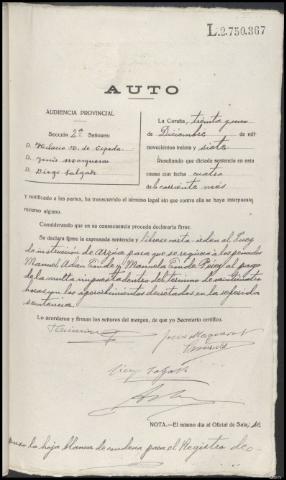 L.2.750.867
AUTO
AUDIENCIA PROVINCIAL
Sección 2ª Señores
D. Hilario N. de Cepeda
D. Jesús Marquina
D. Diego Salgado
La Coruña, treinta y uno
de Diciembre de mil
novecientos treinta y siete
Resultando que dictada sentencia en esta
causa con fecha cuatro
del corriente mes
y notificada a las partes, ha transcurrido el término legal sin que contra ella se haya interpuesto
recurso alguno.
Considerando que en su consecuencia procede declararla firme.
Se declara firme la expresada sentencia y líbrese carta-orden al Juez
de instrucción de Arzúa para que se requiera a los penados
Manuel y Manuela al pago
de la multa impuesta dentro del término de veinticuatro
horas con los apercibimientos decretados en la referida
sentencia.
Lo acordaron y firman los señores del margen, de que yo Secretario certifico.
Diego Salgado
NOTA.—El mismo día al Oficial de Sala,
la hoja blanca de condena para el Registro de